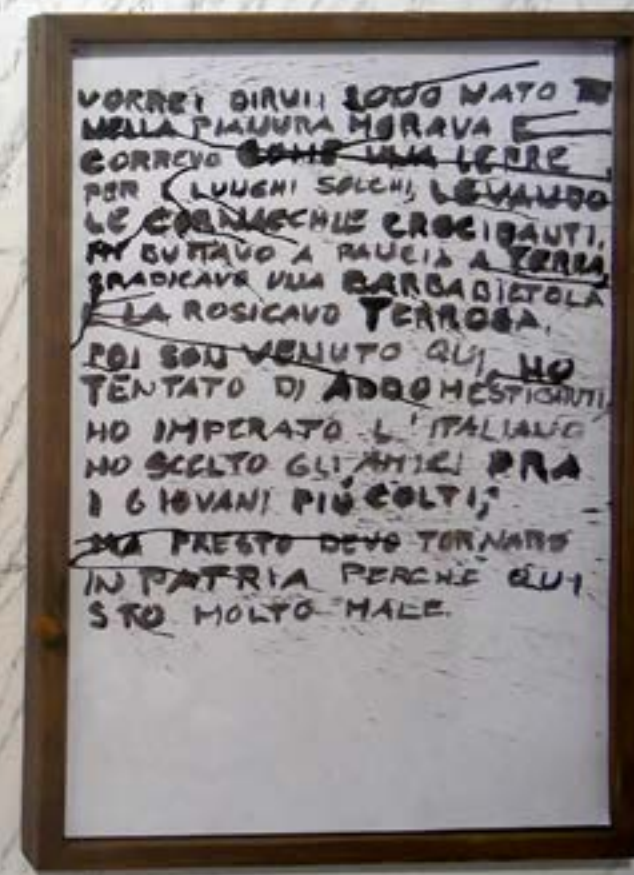 VORREI DIRVI: SONO NATO
NELLA PIANURA MORAVA E
CORREVO COME UNA LEPRE
PER I LUNGHI SOLCHI, LEVANDO
LE CORNACCHIE CROCIDANTI.
MI BUTTAVO A PANCIA A TERRA,
SRADICAVO UNA BARBABIETOLA
E LA ROSICAVO TERROSA.
POI SON VENUTO QUI, HO
TENTATO DI ADDOMESTICARMI,
HO IMPERATO L'ITALIANO
HO SCELTO GLI AMICI FRA
I GIOVANI PIÙ COLTI;
MA PRESTO DEVO TORNARE
IN PATRIA PERCHÈ QUI
STO MOLTO MALE.